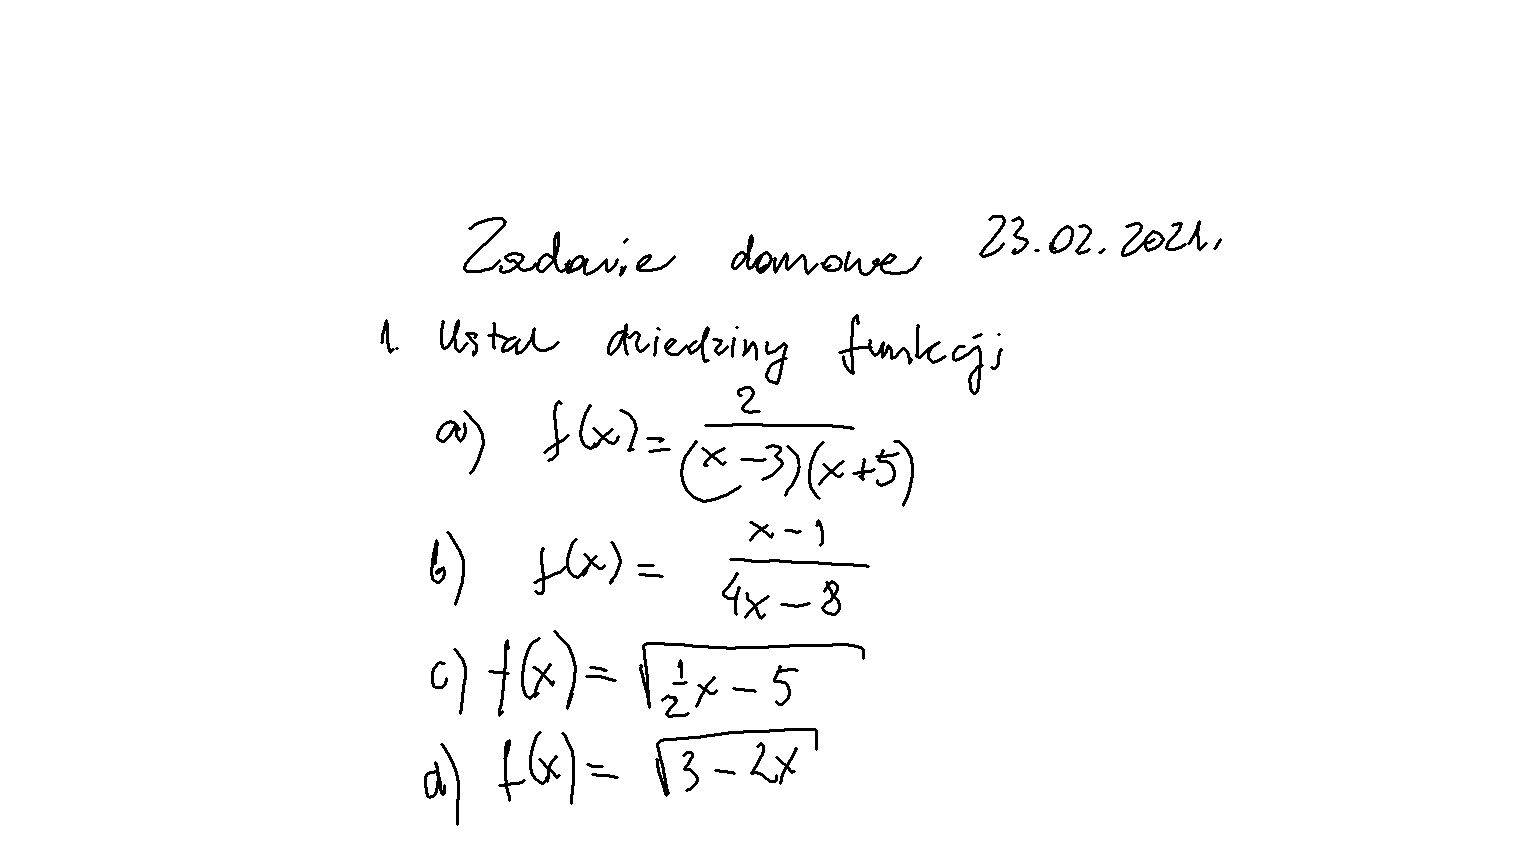 Zadanie domowe 23.02.2021.
1. Ustal dziedziny funkcji
a) f(x) = 2/((x-3)(x+5))
b) f(x) = (x-1)/(4x-8)
c) f(x) = √(1/2x - 5)
d) f(x) = √(3-2x)